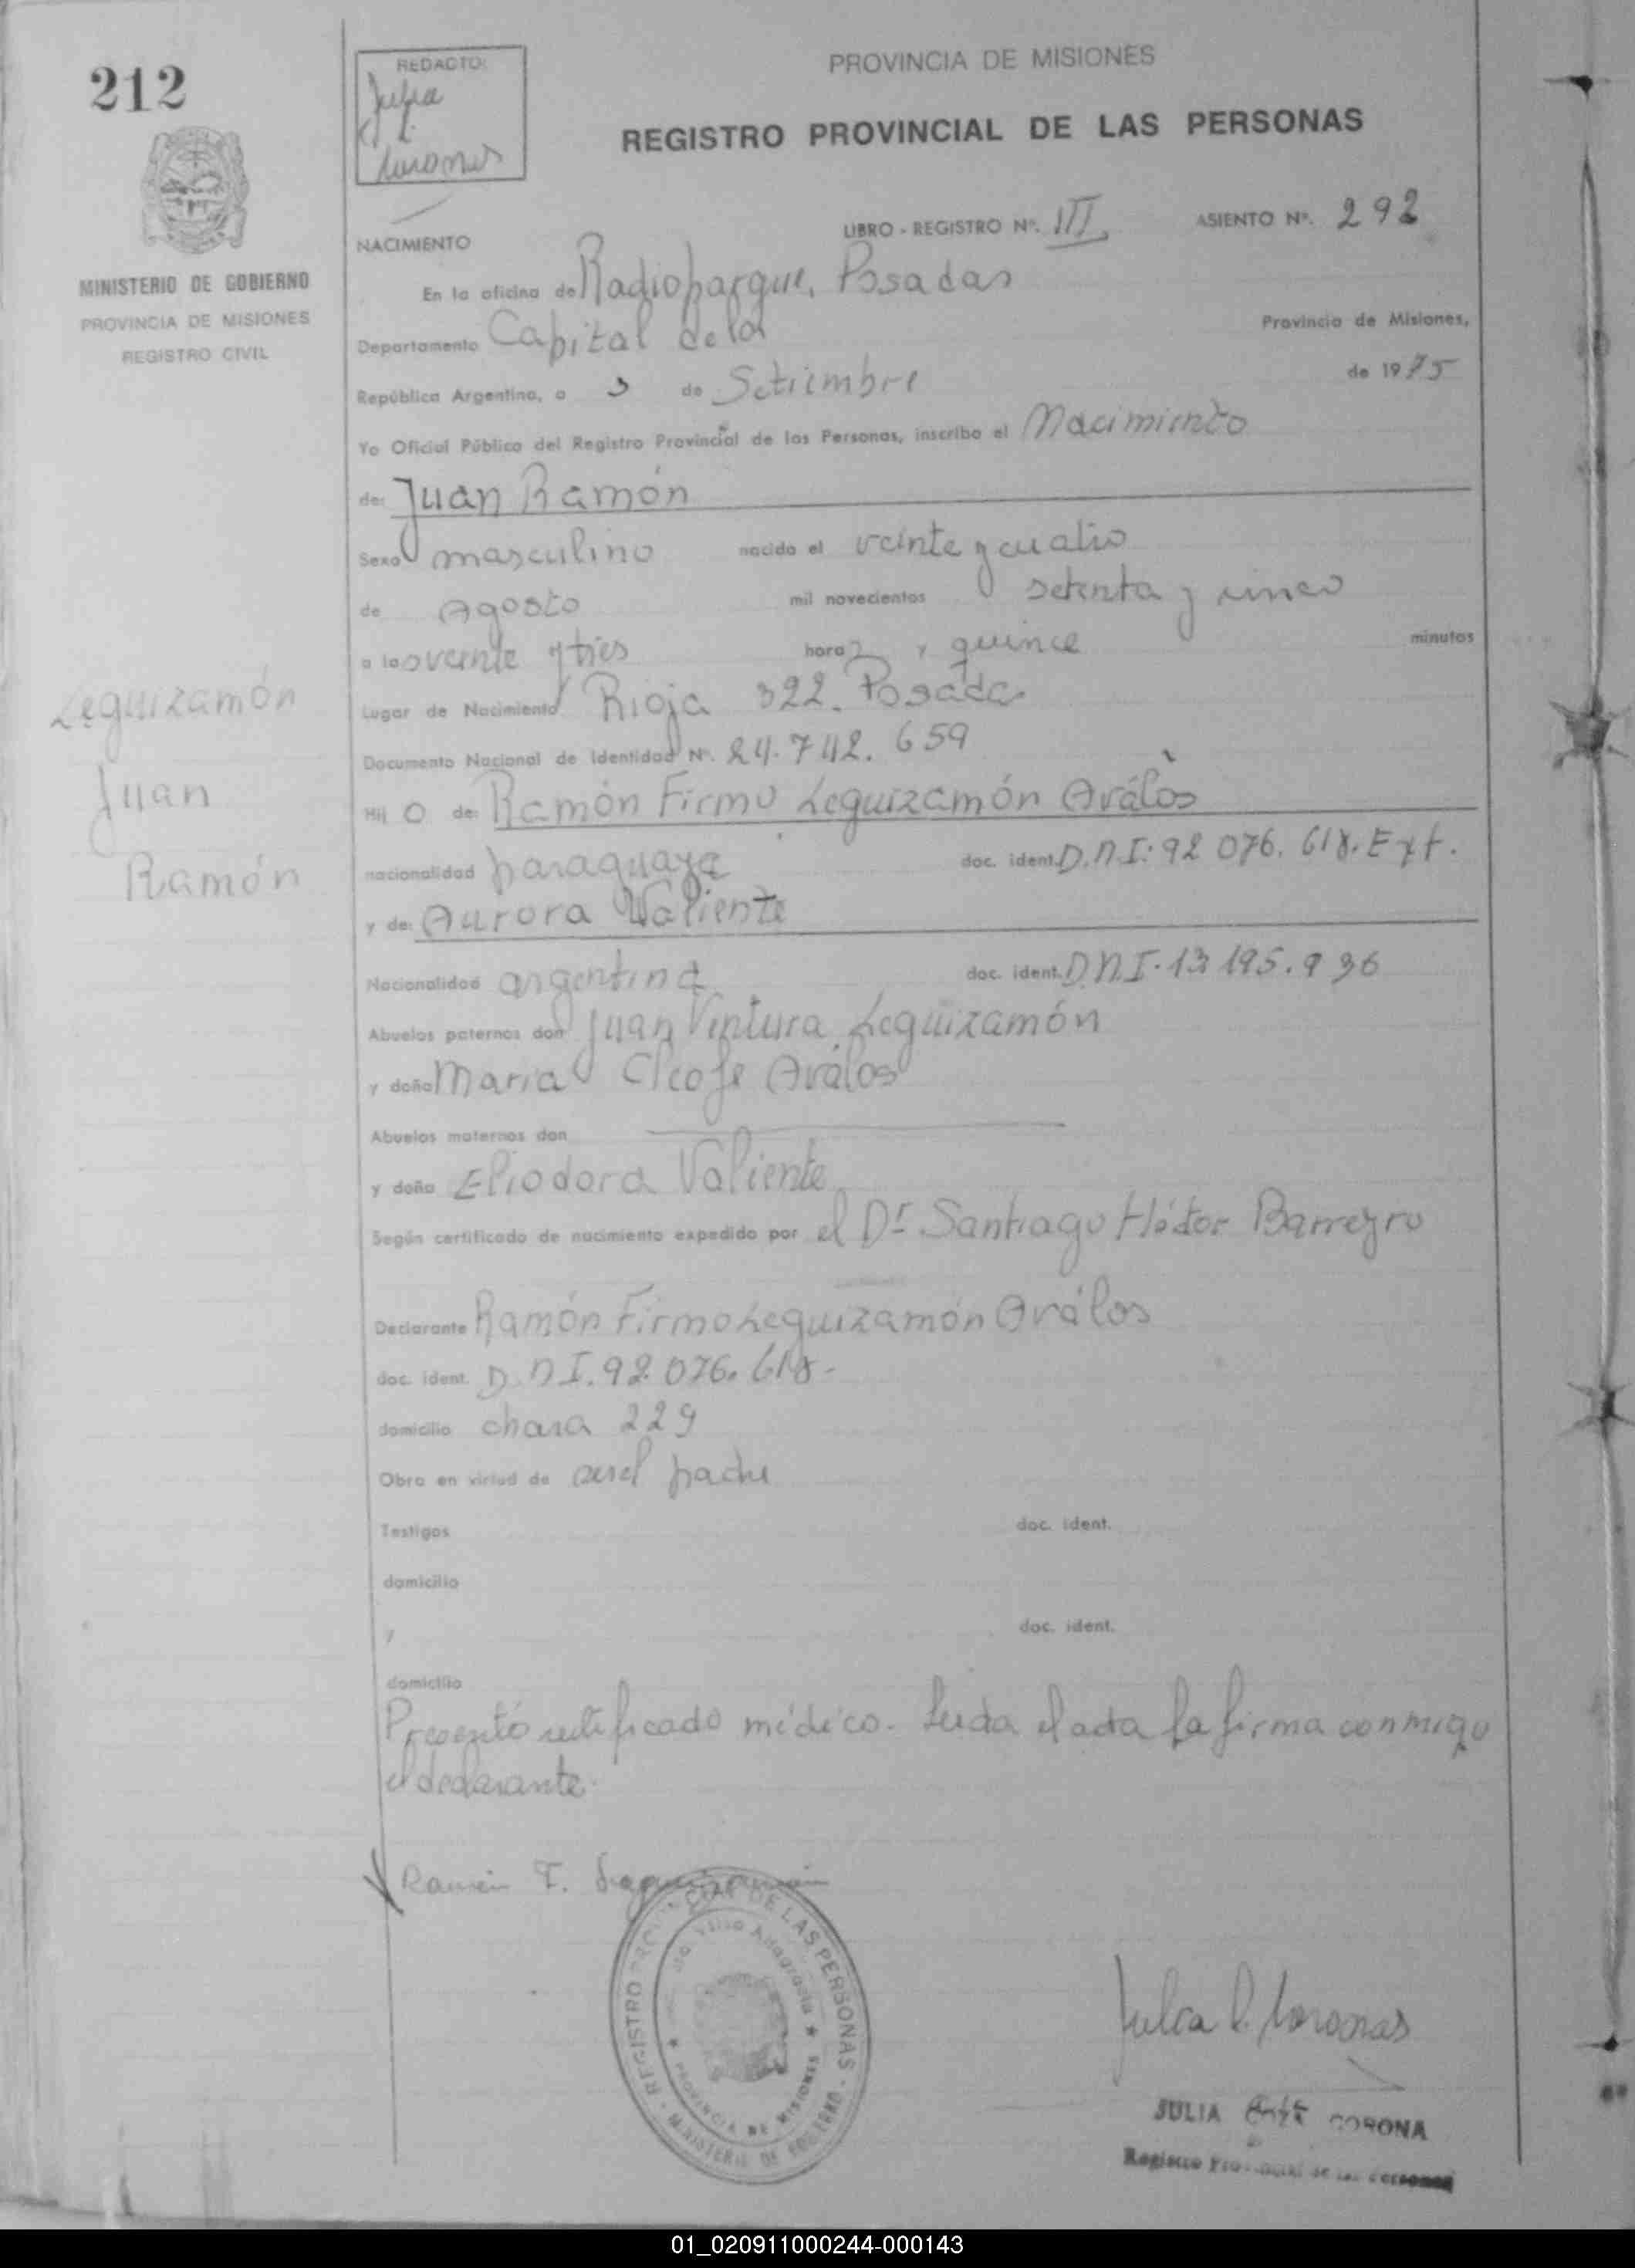 212
REDACTO:
Julia
L.
Coronas
PROVINCIA DE MISIONES
REGISTRO PROVINCIAL DE LAS PERSONAS
MINISTERIO DE GOBIERNO
PROVINCIA DE MISIONES
REGISTRO CIVIL
NACIMIENTO LIBRO - REGISTRO Nº. III ASIENTO Nº. 292
En la oficina de Radioparque, Posadas
Departamento Capital de la Provincia de Misiones,
República Argentina, a 3 de Setiembre de 1975
Yo Oficial Público del Registro Provincial de las Personas, inscribo el Nacimiento
de: Juan Ramón
Sexo masculino nacido el veinte y cuatro
de Agosto mil novecientos setenta y cinco
a las veinte y tres horas y quince minutos
Lugar de Nacimiento Rioja 322. Posadas
Documento Nacional de Identidad Nº. 24.742.659
Hij o de: Ramón Firmo Leguizamón Aválos
nacionalidad paraguaya doc. ident. D.N.I: 92 076. 618. Ext.
y de: Aurora Valiente
Nacionalidad argentina doc. ident. D.N.I. 13 195.936
Abuelos paternos don Juan Ventura Leguizamón
y doña Maria Cleofe Aválos
Abuelos maternos don
y doña Eliodora Valiente
Según certificado de nacimiento expedido por el Dr Santiago Héctor Barreyro
Declarante Ramón Firmo Leguizamón Aválos
doc. ident. D.N.I. 92.076.618-
domicilio chara 229
Obra en virtud de ser el padre
Testigos doc. ident.
domicilio
y doc. ident.
domicilio
Presentó certificado médico. Leida el acta la firma conmigo
el declarante.
Leguizamón
Juan
Ramón
Ramón F. Leguizamón
REGISTRO PROVINCIAL DE LAS PERSONAS - MINISTERIO DE GOBIERNO
Villa
★ PROVINCIA DE MISIONES ★
Julia L. Coronas
JULIA CORONA
Registro Provincial de las Personas
01_020911000244-000143